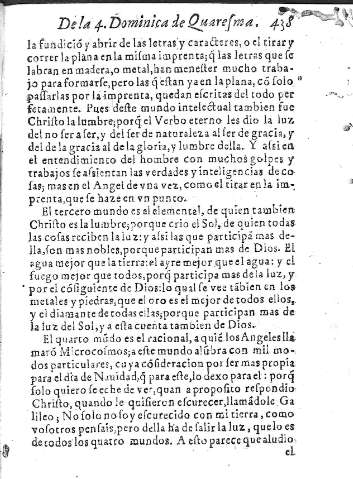 De la 4. Dominica de Quaresma. 438
la fundiciõ y abrir de las letras y caracteres, o el tirar y
correr la plana en la misma imprenta; q̃ las letras que se
labran en madera, o metal, han menester mucho traba-
jo para formarse, pero las q̃ estan ya en la plana, cõ solo
passarlas por la imprenta, quedan escritas del todo per
fetamente. Pues deste mundo intelectual tambien fue
Christo la lumbre; porq̃ el Verbo eterno les dio la luz
del no ser a ser, y del ser de naturaleza al ser de gracia, y
del de la gracia al de la gloria, y lumbre della. Y assi en
el entendimiento del hombre con muchos golpes y
trabajos se assientan las verdades y inteligencias de co-
sas; mas en el Angel de vna vez, como el tirar en la im-
prenta, que se haze en vn punto.
El tercero mundo es el elemental, de quien tambien
Christo es la lumbre; porque crio el Sol, de quien todas
las cosas reciben la luz: y assi las que participã mas de-
lla, son mas nobles, porque participan mas de Dios. El
agua mejor que la tierra: el ayre mejor que el agua: y el
fuego mejor que todos, porq̃ participa mas de la luz, y
por el cõsiguiente de Dios: lo qual se vee tãbien en los
metales y piedras, que el oro es el mejor de todos ellos,
y el diamante de todas ellas; porque participan mas de
la luz del Sol, y a esta cuenta tambien de Dios.
El quarto mũdo es el racional, a quiẽ los Angeles lla
marõ Microcosmos; a este mundo alũbra con mil mo-
dos particulares, cuya cõsideracion por ser mas propia
para el dia de Nauidad, q̃ para este, lo dexo para el: porq̃
solo quiero se eche de ver, quan a proposito respondio
Christo, quando le quisieron escurecer, llamãdole Ga
lileo; No solo no soy escurecido con mi tierra, como
vosotros pensais, pero della ha de salir la luz, que lo es
de todos los quatro mundos. A esto parece que aludio
el